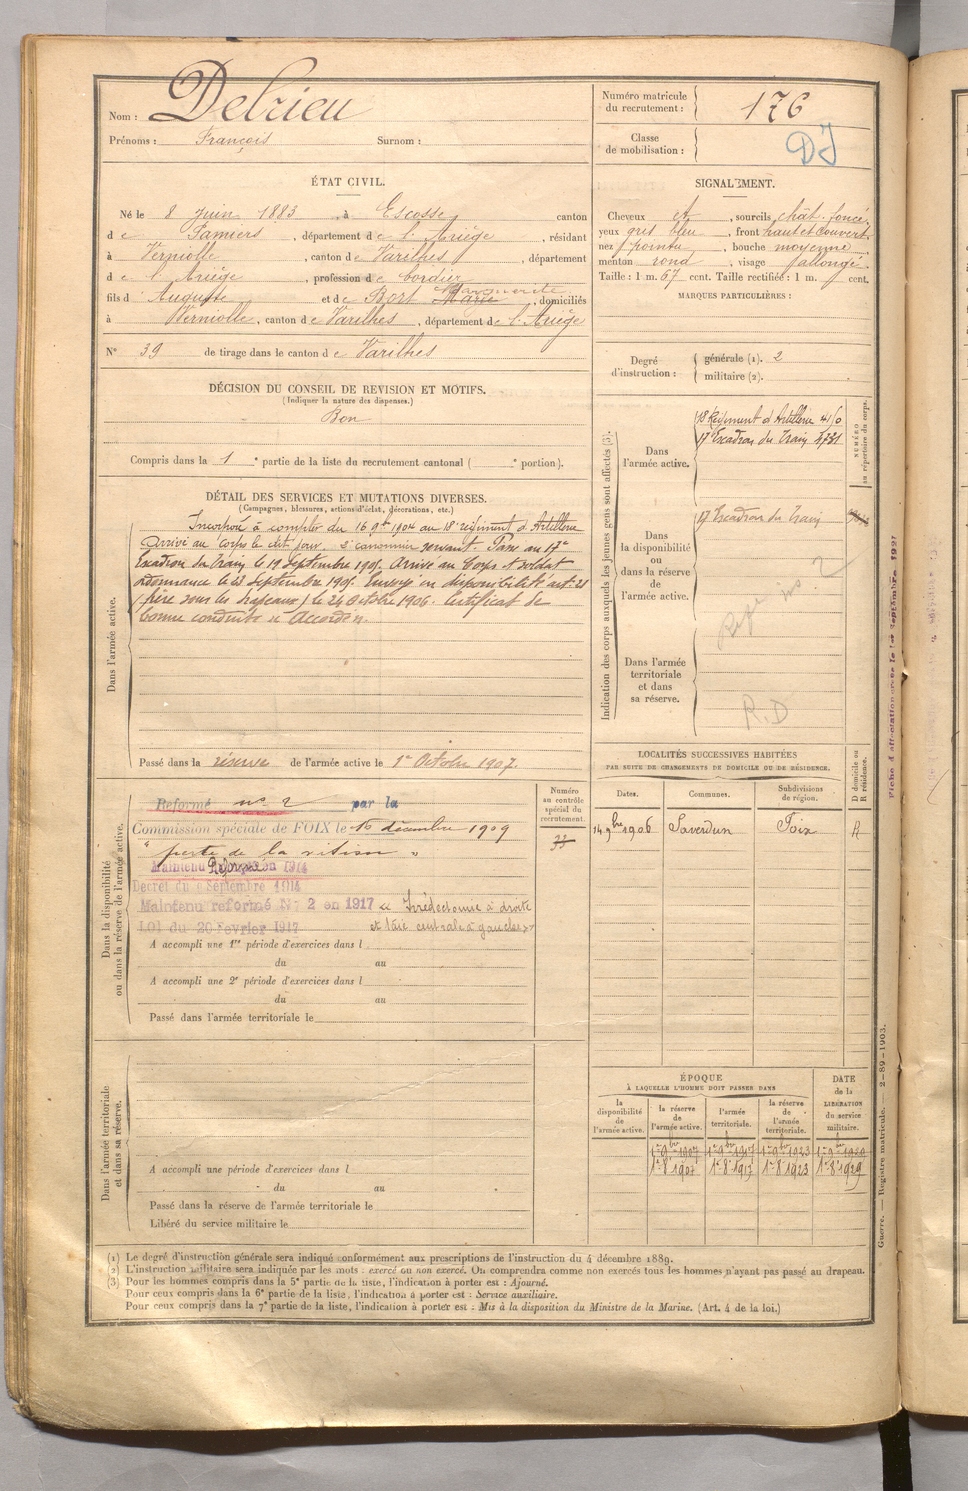 Nom : Delrieu
Prénoms : François Surnom :
Numéro matricule
du recrutement : 176
Classe
de mobilisation :
ÉTAT CIVIL.
Né le 8 juin 1883 à Escosse canton
de Pamiers, département de l'Ariège, résidant
à Verniolle, canton de Varilhes, département
de l'Ariège, profession de bordier
fils d'Auguste et de Bort Marie Marguerite, domiciliés
à Verniolle, canton de Varilhes, département de l'Ariège
N° 39 de tirage dans le canton de Varilhes
SIGNALEMENT.
Cheveux ct, sourcils chât. foncé,
yeux gris bleu, front haut et couvert,
nez pointu, bouche moyenne
menton rond, visage allongé.
Taille : 1 m. 67 cent. Taille rectifiée : 1 m. cent.
MARQUES PARTICULIÈRES :
Degré
d'instruction :
générale (1). 2
militaire (2).
DÉCISION DU CONSEIL DE REVISION ET MOTIFS.
(Indiquer la nature des dispenses.)
Bon
Compris dans la 1e partie de la liste du recrutement cantonal ( e portion).
DÉTAIL DES SERVICES ET MUTATIONS DIVERSES.
(Campagnes, blessures, actions d'éclat, décorations, etc.)
Dans l'armée active.
Incorporé à compter du 16 9bre 1904 au 18e régiment d'Artillerie
Arrivé au corps le dit jour. 2e canonnier servant. Passé au 17e
Escadron du Train le 19 Septembre 1905. Arrivé au Corps et soldat
ordonnance le 23 Septembre 1905. Envoyé en disponibilité art. 21
(frère sous les drapeaux) le 24 Octobre 1906. Certificat de
bonne conduite « Accordé ».
Passé dans la réserve de l'armée active le 1er Octobre 1907.
Indication des corps auxquels les jeunes gens sont affectés (3).
NUMÉRO
au répertoire du corps.
Dans
l'armée active.
18 Régiment d'Artillerie
17 Escadron du Train 4731
Dans
la disponibilité
ou
dans la réserve
de
l'armée active.
17 Escadron du Train
Dans l'armée
territoriale
et dans
sa réserve.
R.D
Dans la disponibilité
ou dans la réserve de l'armée active.
Numéro
au contrôle
spécial du
recrutement.
Réformé n° 2 par la
Commission spéciale de FOIX le 16 décembre 1909
"perte de la vision"
Maintenu Réformé en 1914
Décret du 9 Septembre 1914
Maintenu réformé N° 2 en 1917 « Irridectomie à droite
Loi du 20 Fevrier 1917 et taie centrale à gauche »
A accompli une 1re période d'exercices dans l
du au
A accompli une 2e période d'exercices dans l
du au
Passé dans l'armée territoriale le
LOCALITÉS SUCCESSIVES HABITÉES
PAR SUITE DE CHANGEMENTS DE DOMICILE OU DE RÉSIDENCE.
D domicile ou
R résidence.
Dates. Communes. Subdivisions
de région.
14 9bre 1906 Saverdun Foix R
Dans l'armée territoriale
et dans sa réserve.
A accompli une période d'exercices dans l
du au
Passé dans la réserve de l'armée territoriale le
Libéré du service militaire le
ÉPOQUE
À LAQUELLE L'HOMME DOIT PASSER DANS
la
disponibilité
de
l'armée active.
la réserve
de
l'armée active.
l'armée
territoriale.
la réserve
de
l'armée
territoriale.
DATE
de la
LIBÉRATION
du service
militaire.
1er 9bre 1907 1er 9bre 1917 1er 9bre 1923
Guerre. — Registre matricule. — 2-89-1903.
(1) Le degré d'instruction générale sera indiqué conformément aux prescriptions de l'instruction du 4 décembre 1889.
(2) L'instruction militaire sera indiquée par les mots : exercé ou non exercé. On comprendra comme non exercés tous les hommes n'ayant pas passé au drapeau.
(3) Pour les hommes compris dans la 5e partie de la liste, l'indication à porter est : Ajourné.
Pour ceux compris dans la 6e partie de la liste, l'indication à porter est : Service auxiliaire.
Pour ceux compris dans la 7e partie de la liste, l'indication à porter est : Mis à la disposition du Ministre de la Marine. (Art. 4 de la loi.)